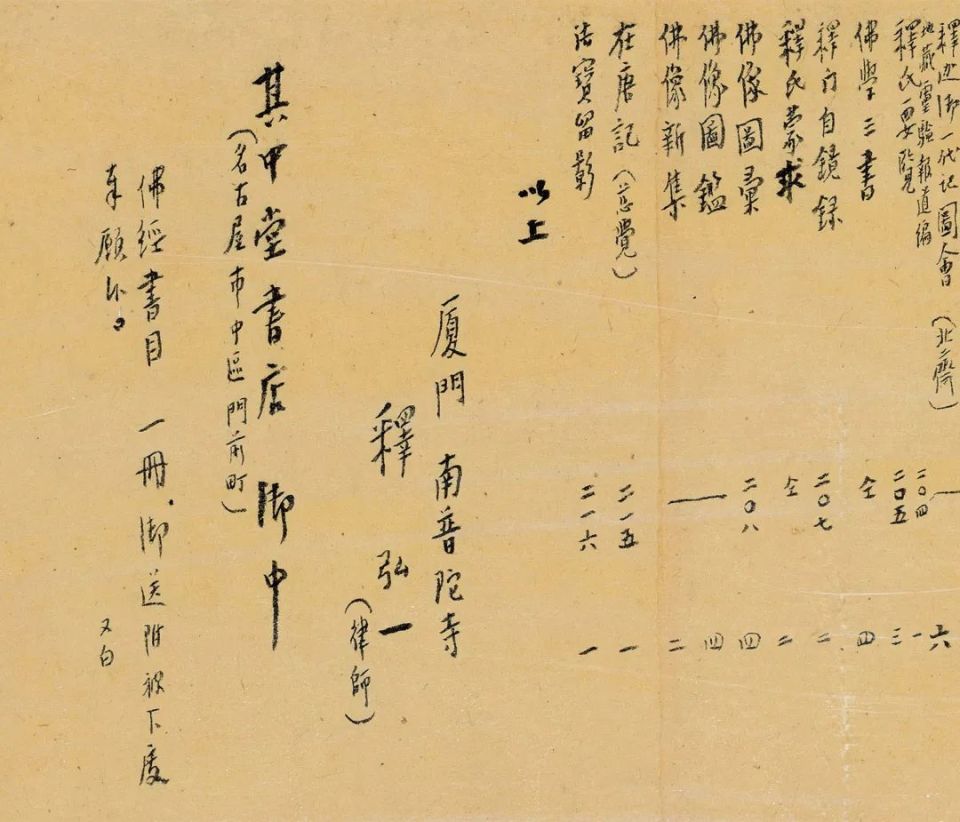 釋迦御一代記圖會（北齋） 一 六
地藏靈驗報道編 二〇四 一
釋氏要覽 二〇五 三
佛學三書 仝 四
釋門自鏡録 二〇七 二
釋氏蒙求 仝 二
佛像圖彙 二〇八 四
佛像圖鑑 四
佛像新集 一 二
在唐記（慈覺） 二一五 一
法寶留影 二一六 一
以上
厦門 南普陀寺
釋 弘一
（律師）
其中堂書店 御中
（名古屋市中區門前町）
佛經書目 一冊、御送附被下度
奉願候。
又白